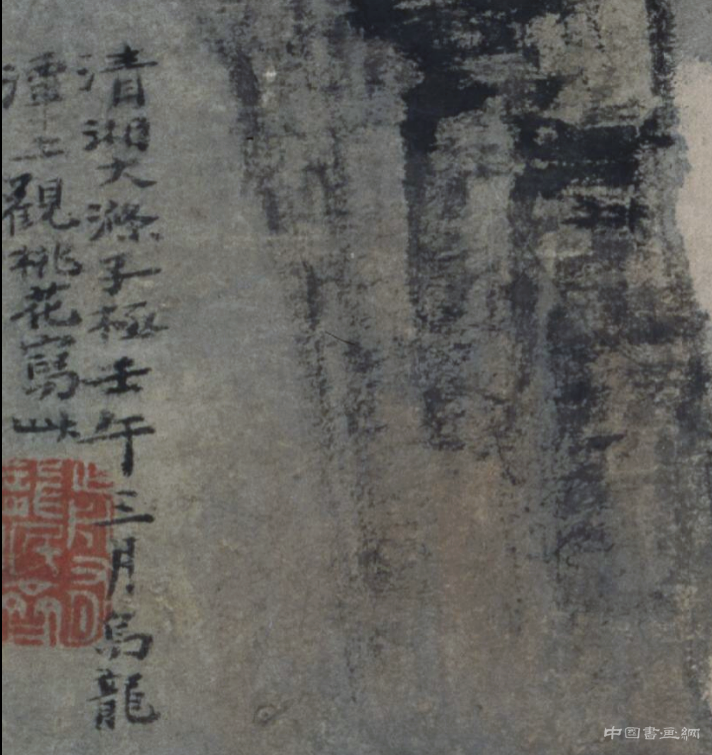 清湘大滌子極壬午三月烏龍
潭上觀桃花寫此
中国書画網